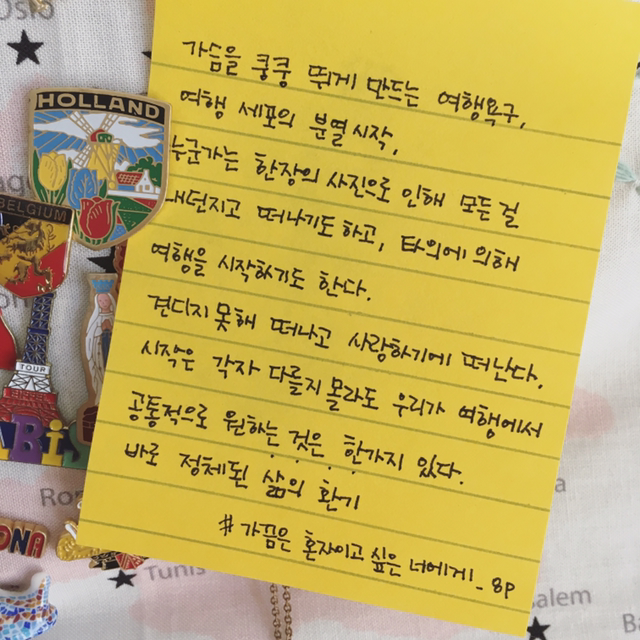 Oslo
가슴을 쿵쿵 뛰게 만드는 여행욕구,
여행 세포의 분열시작,
누군가는 한장의 사진으로 인해 모든걸
내던지고 떠나기도하고, 타의에 의해
여행을 시작하기도 한다.
견디지못해 떠나고 사랑하기에 떠난다.
시작은 각자 다를지몰라도 우리가 여행에서
공통적으로 원하는 것은 한가지 있다.
바로 정체된 삶의 환기
#가끔은 혼자이고싶은 너에게_8P
HOLLAND
BELGIUM
TOUR
Tunis